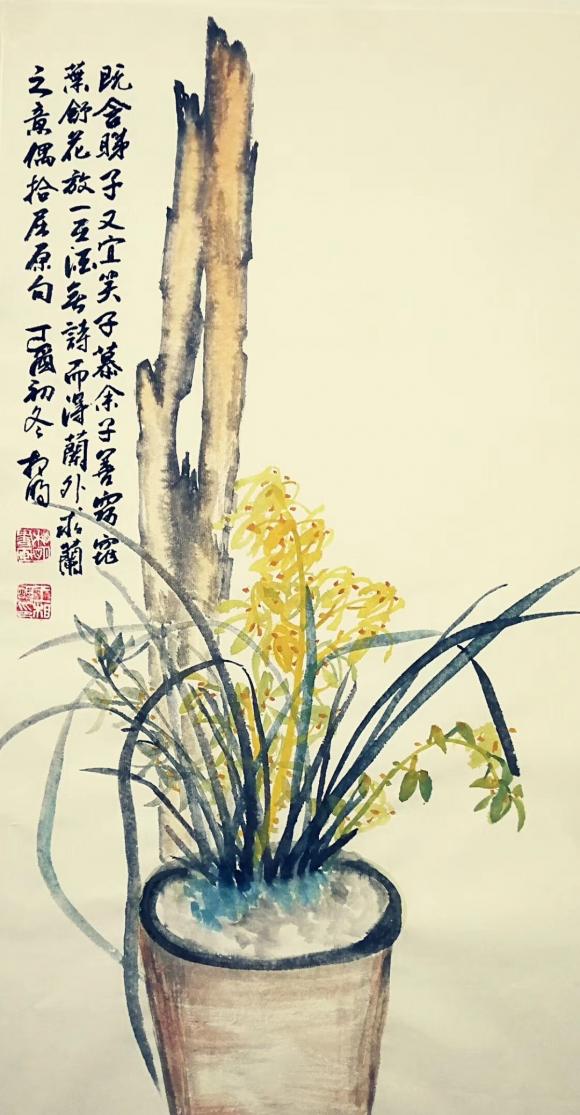 既含睇兮又宜笑子慕余兮善窈窕
葉舒花放一酒詩而得蘭外求蘭
之意偶拾屈原句 丁酉初冬